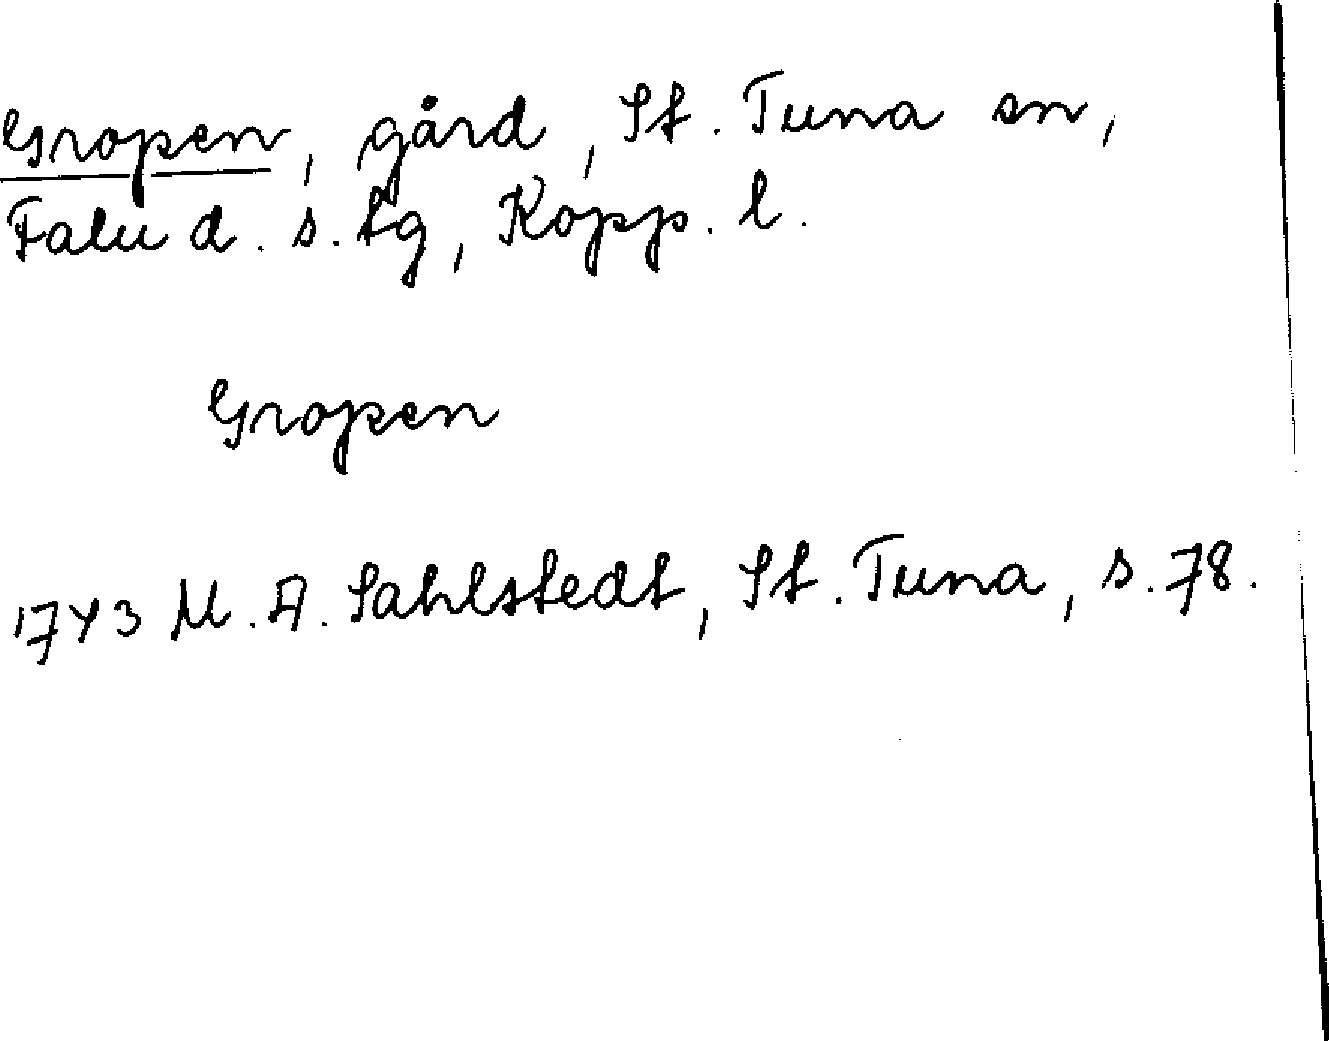 Gropen, gård, St. Tuna sn,
Falu d. s. tg, Kopp. l.
Gropen
1743 M. A. Sahlstedt, St. Tuna, s. 78.